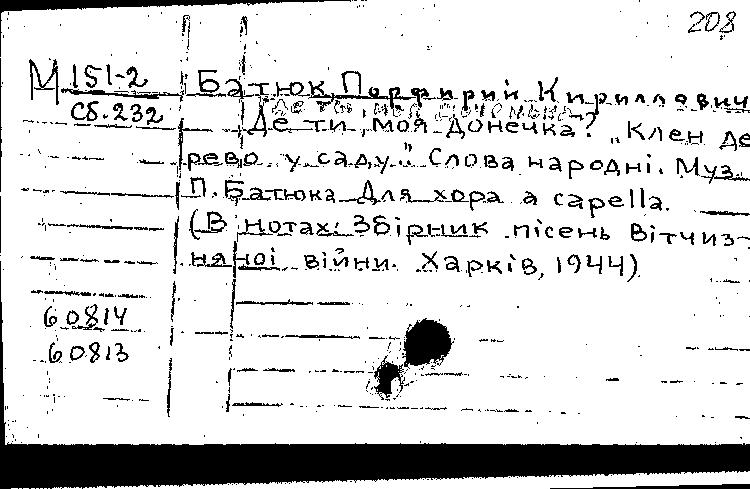 208
М 151-2
Сб. 232
Батюк, Порфирий Кириллович
Де ти, моя донечка? „Клен де
рево у саду." Слова народні. Муз.
П. Батюка Для хора a capella.
(В нотах: Збірник пісень Вітчиз-
няної війни. Харків, 1944)
60814
60813